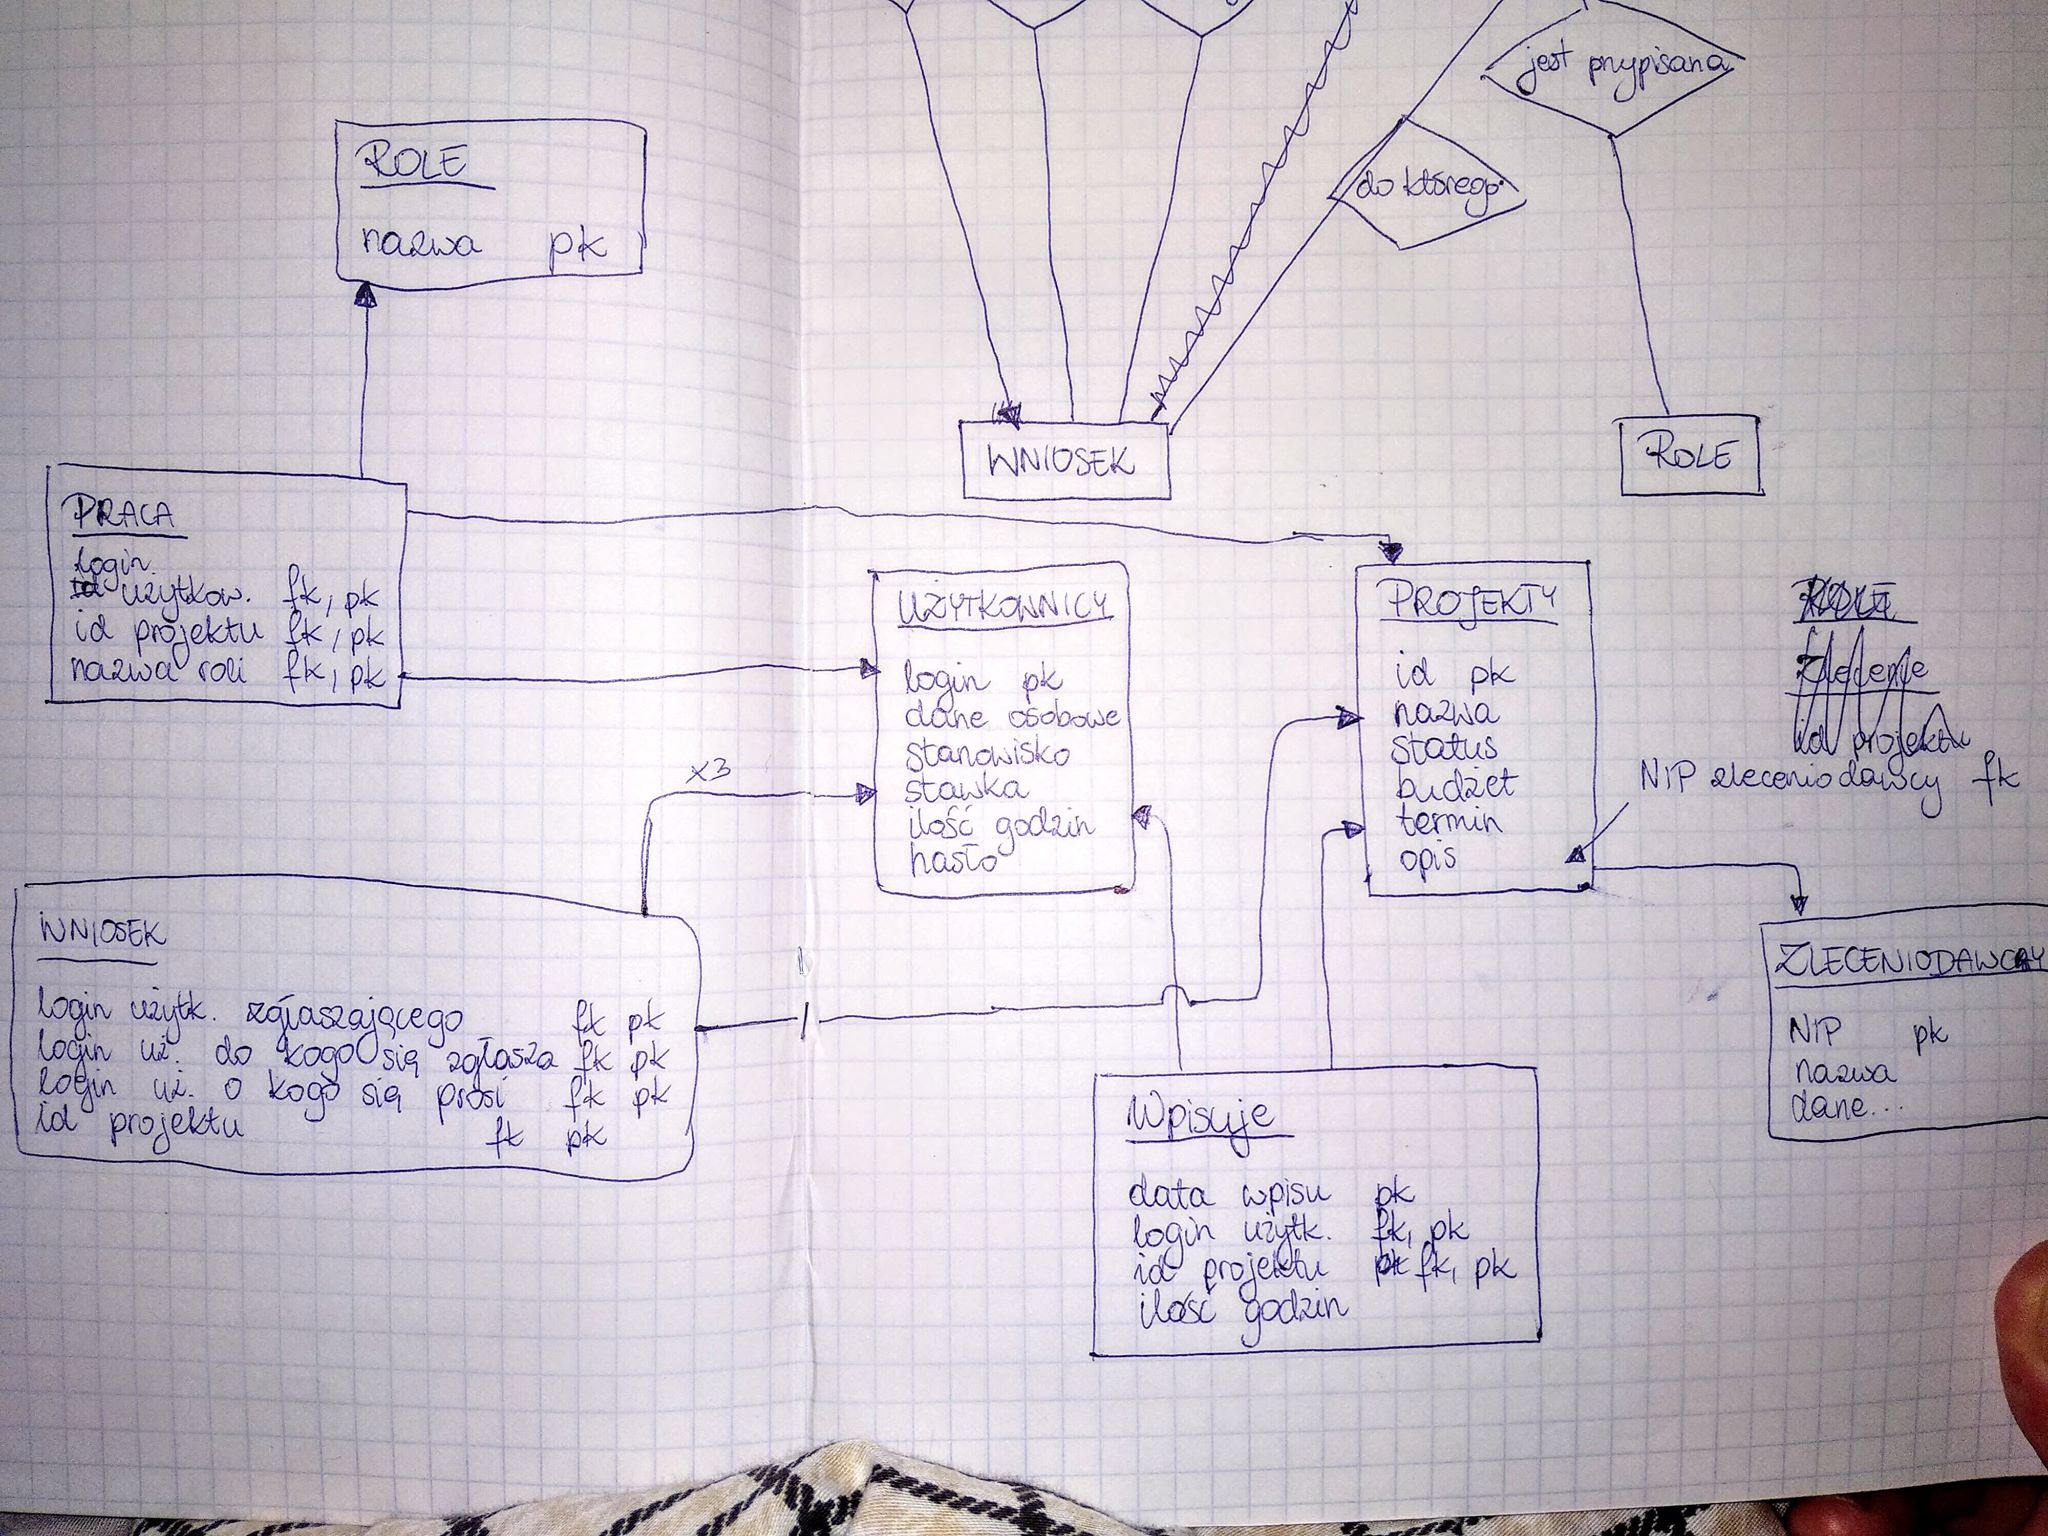 jest przypisana
do którego
ROLE
nazwa pk
WNIOSEK
ROLE
PRACA
login
użytkow. fk, pk
id projektu fk, pk
nazwa roli fk, pk
UŻYTKOWNICY
login pk
dane osobowe
stanowisko
stawka
ilość godzin
hasło
PROJEKTY
id pk
nazwa
status
budżet
termin
opis
Zlecenie
id projektu
NIP zleceniodawcy fk
x3
WNIOSEK
login użytk. zgłaszającego fk pk
login uż. do kogo się zgłasza fk pk
login uż. o kogo się prosi fk pk
id projektu fk pk
ZLECENIODAWCY
NIP pk
nazwa
dane...
Wpisuje
data wpisu pk
login użytk. fk, pk
id projektu fk, pk
ilość godzin